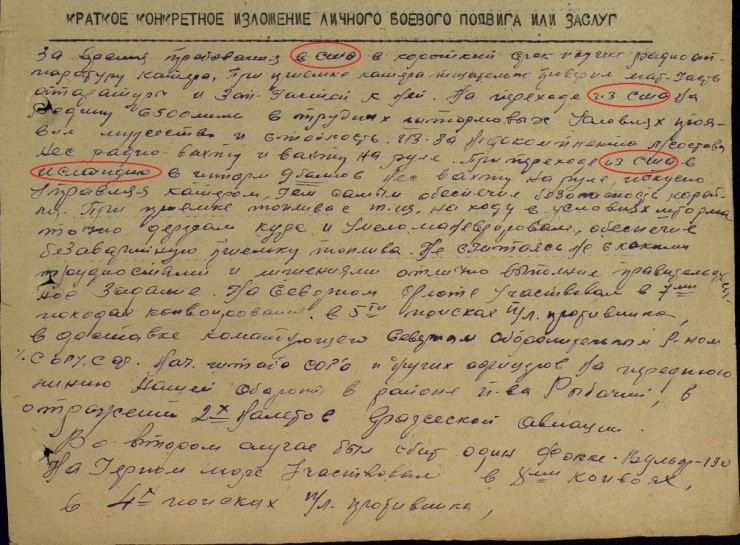 КРАТКОЕ КОНКРЕТНОЕ ИЗЛОЖЕНИЕ ЛИЧНОГО БОЕВОГО ПОДВИГА ИЛИ ЗАСЛУГ
За время пребывания в США в короткий срок изучил радиоап-
паратуру катера. При приемке катера тщательно проверил мат-часть
аппаратуры и зап-частей к ней. На переходе из США на
Родину 6500 миль в трудных штормовых условиях проя-
вил мужество и стойкость. Из-за недокомплекта л/состава
нес радио-вахту и вахту на руле. При переходе из США в
Исландию в шторм 9 баллов нес вахту на руле, искусно
управляя катером, тем самым обеспечил безопасность кораб-
ля. При приемке топлива с на ходу в условиях шторма
точно держал курс и умело маневрировал, обеспечив
безаварийную приемку топлива. Не считаясь не с какими
трудностями и лишениями отлично выполнил правительствен-
ное задание. На Северном флоте участвовал в 7ми
походах конвоирования. в 5ти поисках п/л. противника,
в доставке командующего Северным оборонительным р-ном
Нач. штаба СОРа, и других офицеров на переднюю
линию нашей обороны в районе п-ва Рыбачий, в
отражении 2х налетов вражеской авиации.
Во втором случае был сбит один Фокке-Вульф-190
На Черном море участвовал в 8ми конвоях,
в 4х поисках п/л. противника,